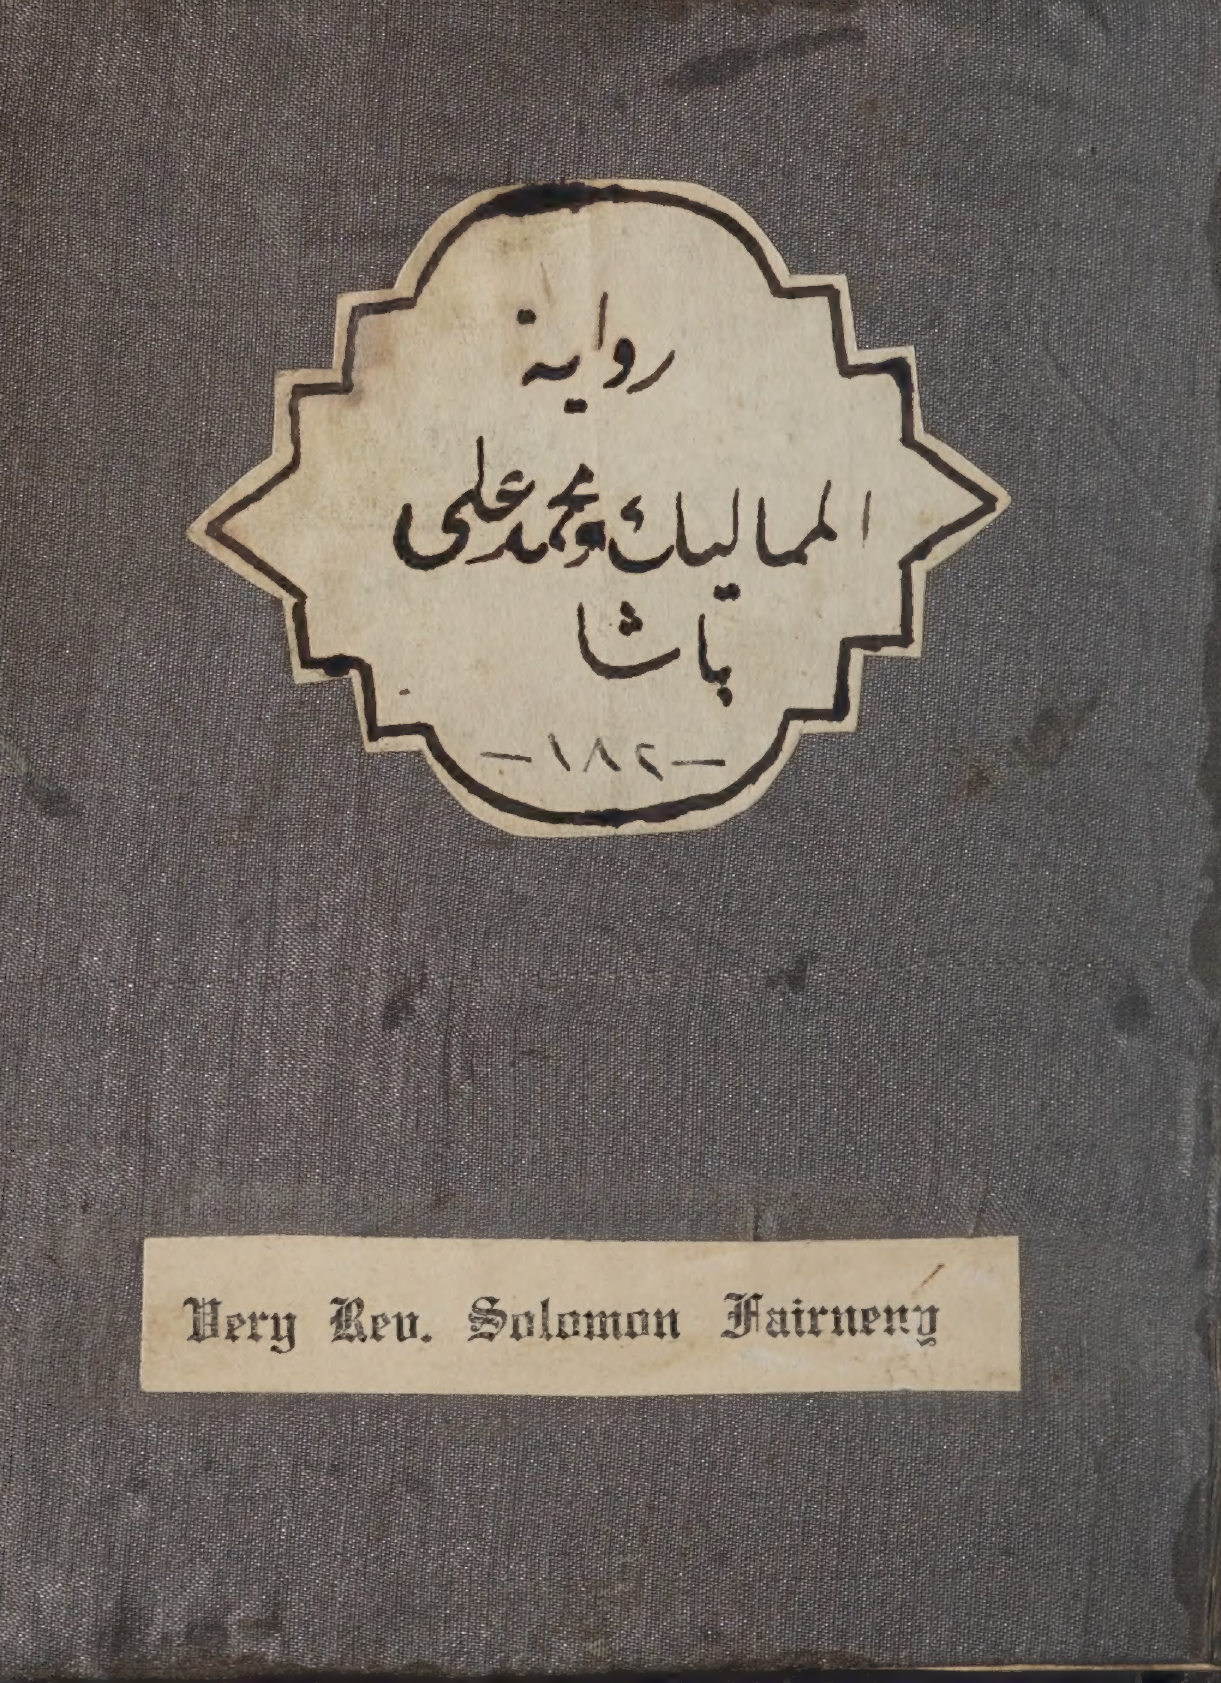 رواية
المماليك ومحمد علي
پاشا
-١٨٢-
Very Rev. Solomon Fairneny